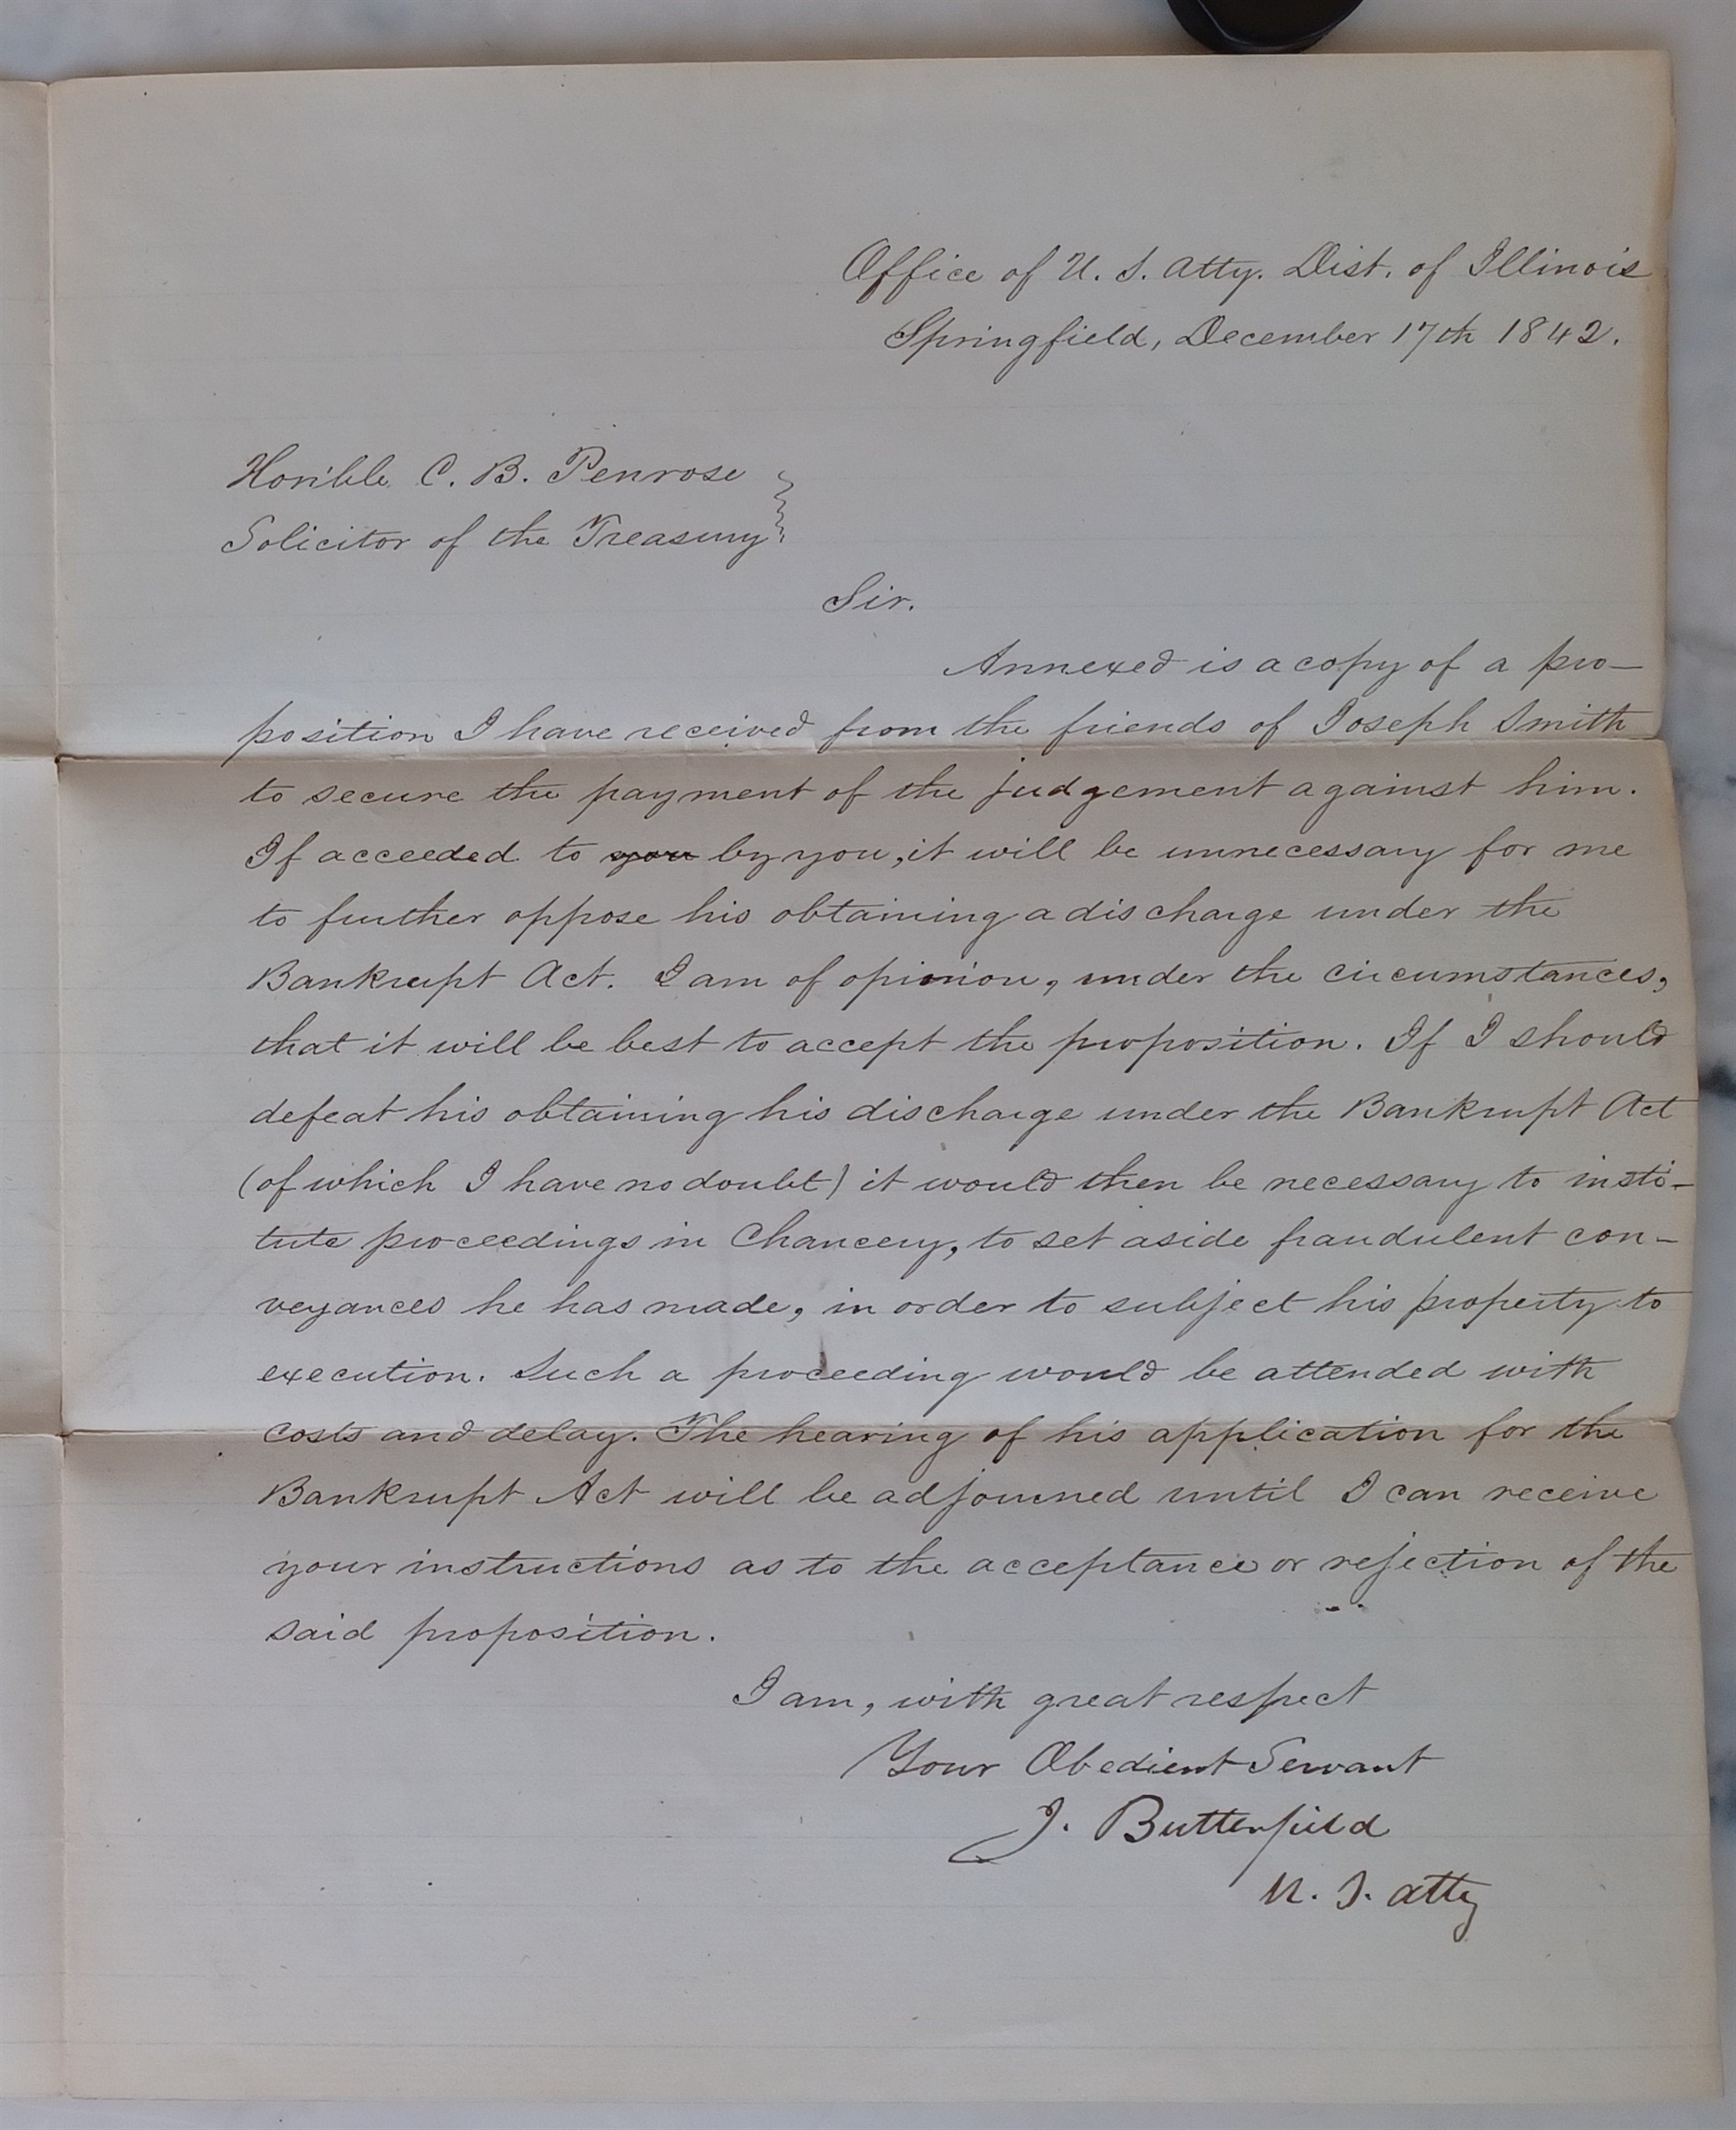 Office of U. S. Atty. Dist. of Illinois
Springfield, December 17th 1842.
Hon'ble C. B. Penrose
Solicitor of the Treasury
Sir.
Annexed is a copy of a pro-
position I have received from the friends of Joseph Smith
to secure the payment of the judgement against him.
If acceeded to you by you, it will be unnecessary for me
to further oppose his obtaining a discharge under the
Bankrupt Act. I am of opinion, under the circumstances,
that it will be best to accept the proposition. If I should
defeat his obtaining his discharge under the Bankrupt Act
(of which I have no doubt) it would then be necessary to insti-
tute proceedings in Chancery, to set aside fraudulent con-
veyances he has made, in order to subject his property to
execution. Such a proceeding would be attended with
costs and delay. The hearing of his application for the
Bankrupt Act will be adjourned until I can receive
your instructions as to the acceptance or rejection of the
said proposition.
I am, with great respect
Your Obedient Servant
J. Butterfield
U. S. atty